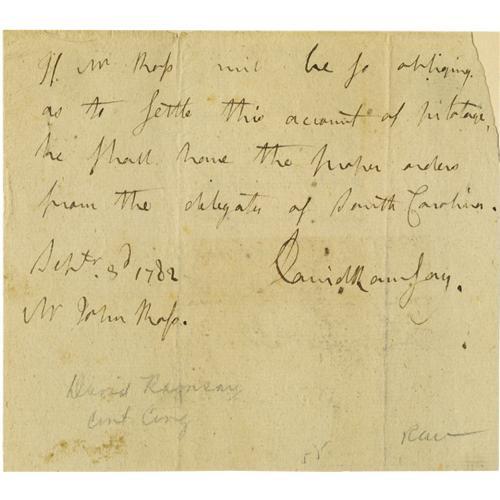 If Mr Ross will be so obliging
as to settle this account of pilotage,
he shall have the proper orders
from the delegates of South Carolina.
Septr. 3d 1782 David Ramsay.
Mr John Ross.
David Ramsay
Cont Cong
55 Rau